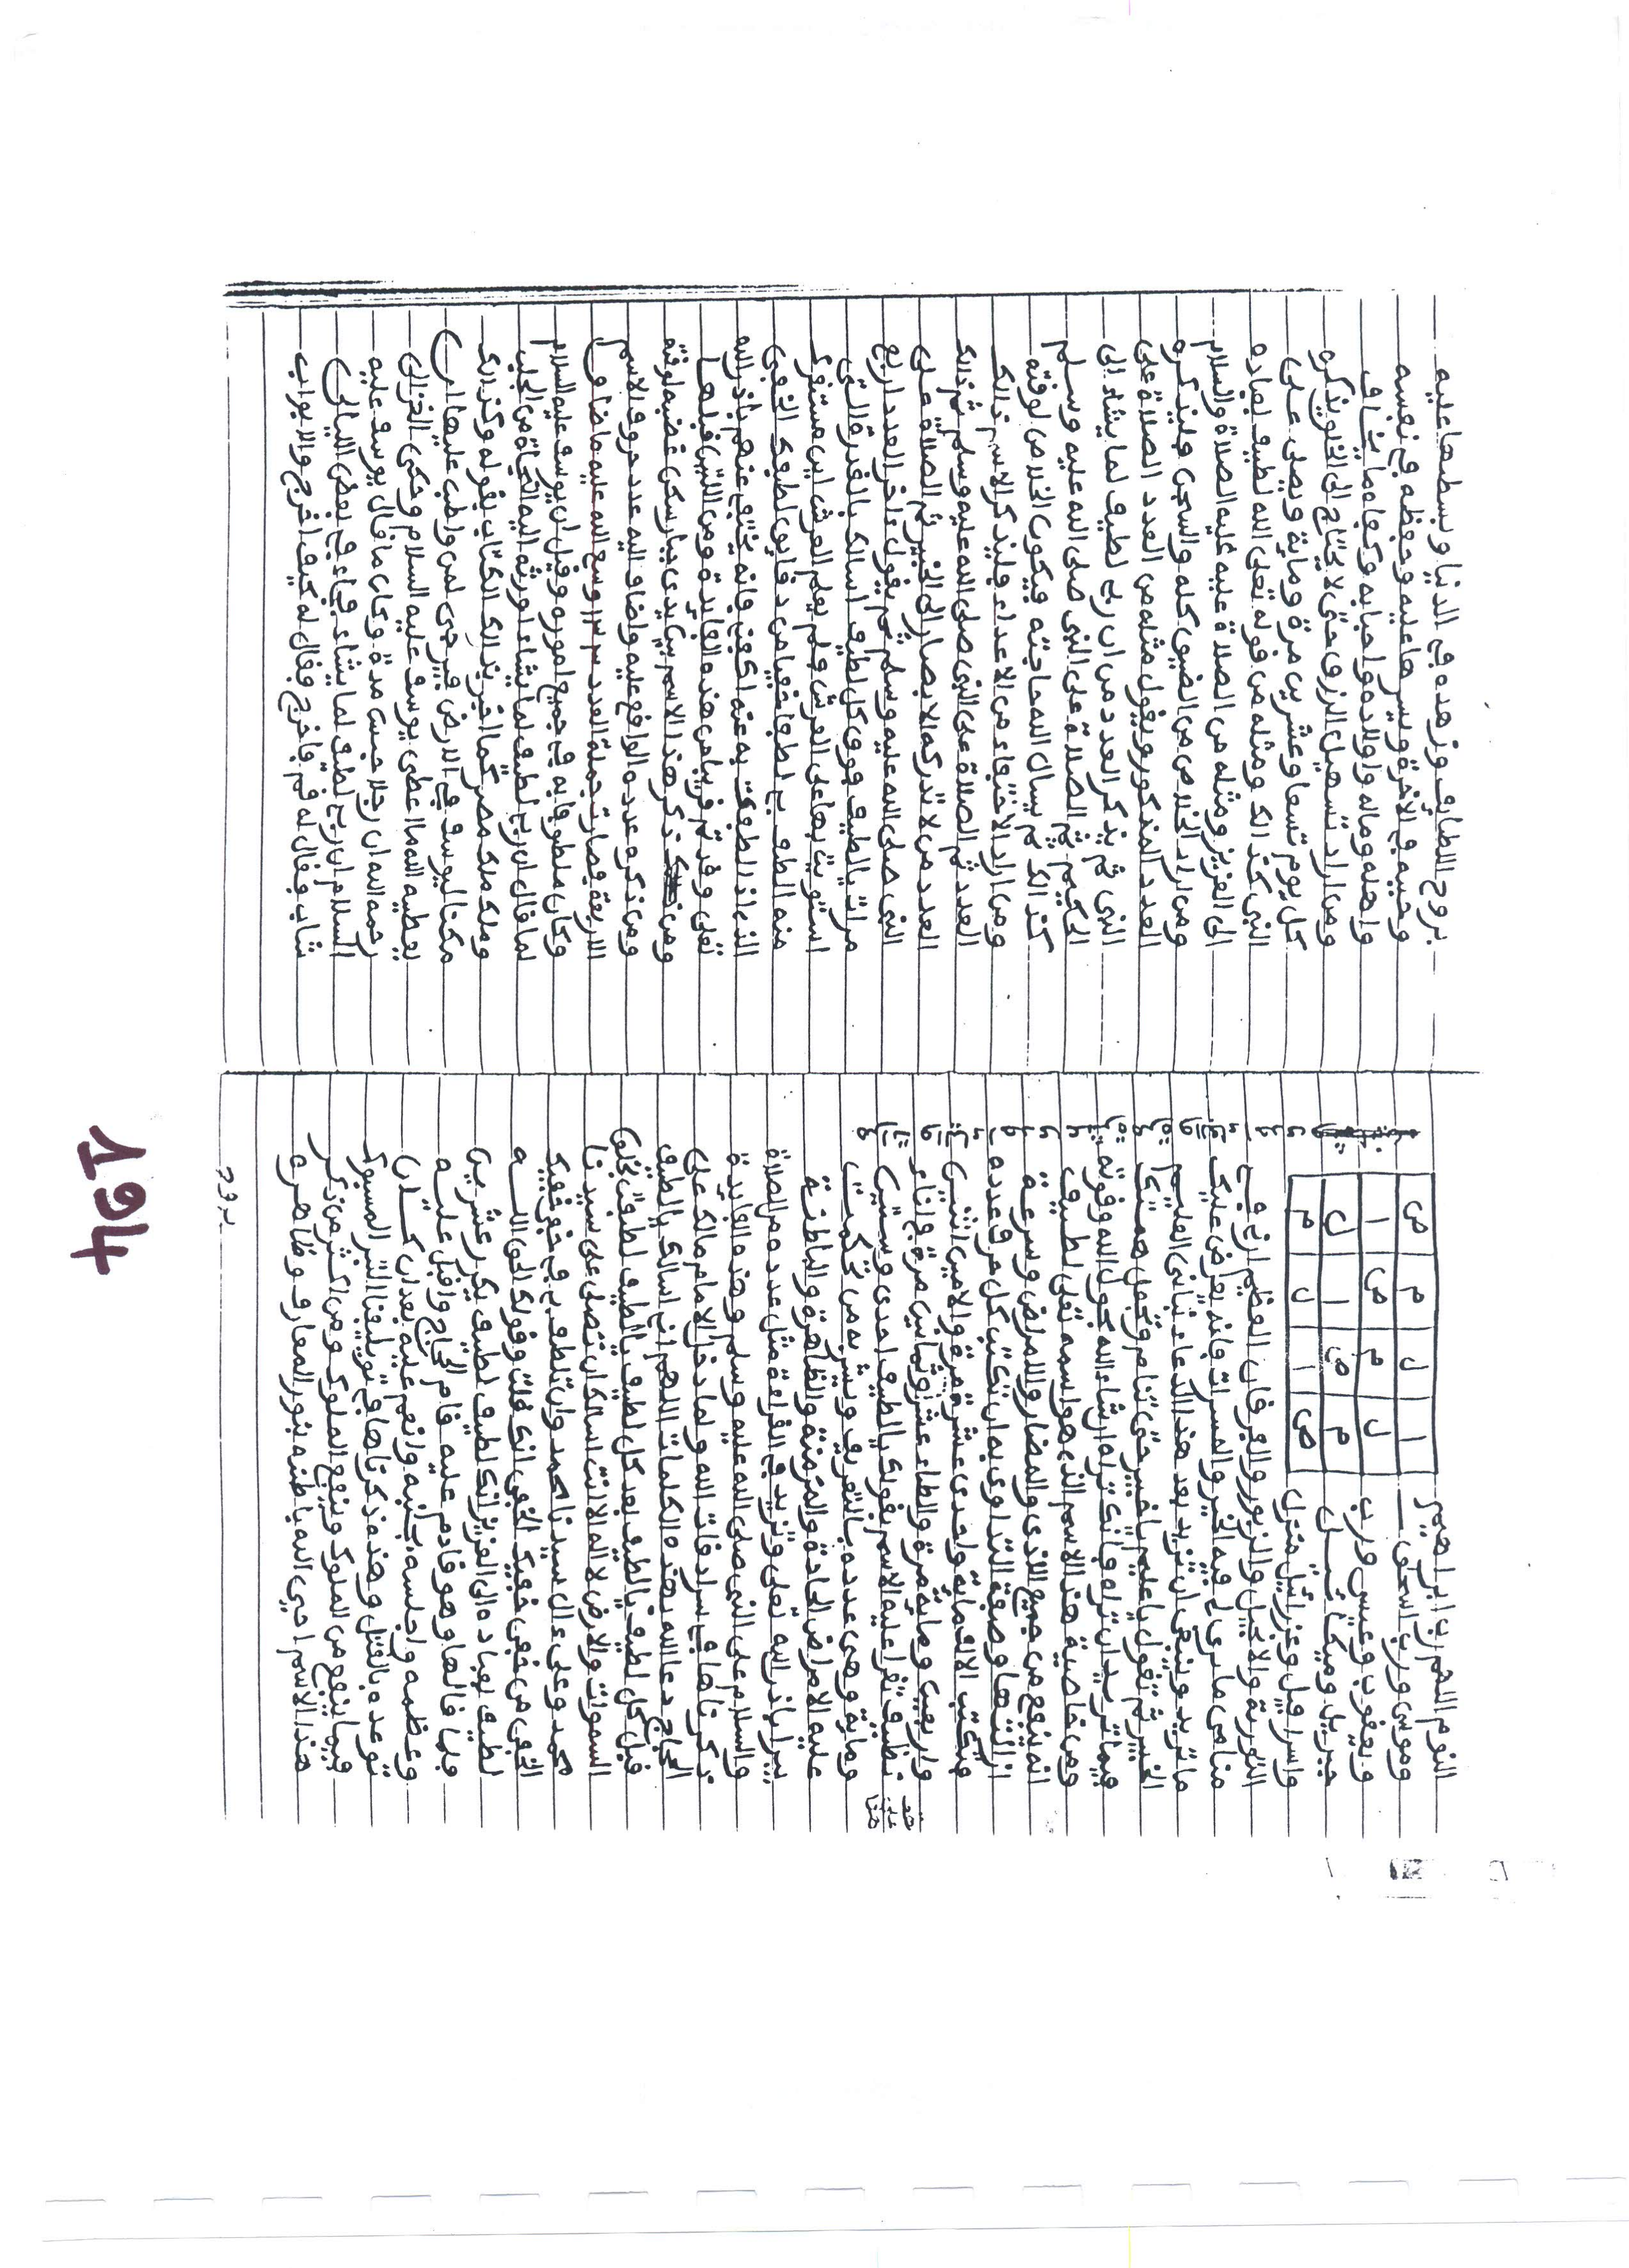 النوم اللهم رب ابراهيم
وموسى ورب اسحق
ويعقوب وعيسى ورب
جبريل وميكائيل
واسرافيل وعزرائيل منزل
ا ل م ص
ل م ص ا
م ص ا ل
ص ا ل م
التورية والانجيل والزبور والفرقان العظيم ارني في
منامي ما لي فيه الخير والمسرات فانه يعرض عليك
ما تريد وينبغي ان تزيد بعد هذا الدعاء نباني العليم
الخبير ثم تقول يا عليم يا خبير حتى تنام وتجعل همتك
فيما تريد ان تراه فانك تراه ان شاء الله بحول الله وقوته
ومن خاصية هذا الاسم الذي هو اسمه تعلى لطيف
انه ينفع من جميع الاذى والمضار والامراض وسرعة
ازالتها وصفة التداوي به ان تكتب كل حرف وعدده
فتكتب الالف ماية واحدى عشرة مرة واللامين اثنتين
واربعين وماية مرة والطاء عشرا وثمانين مرة في اناء
نظيف تقرا عليه الاسم بقولك يا لطيف احدى وستين
وماية وهي عدده بالتعريف ويشربه من تحكمت
عليه الامراض الحادة والمزمنة والظاهرة والباطنة
يبرا باذن الله تعلى وتزيد في القراءة مثل عدده من الصلاة
والسلام على النبي صلى الله عليه وسلم وهذه الفايدة
ذكرناها في سرادقات الله ولما دخل الامام مالك على
الحجاج دعا الله بهذه الكلمات اللهم اني اسالك يا لطيف
قبل كل لطيف يا لطيف بعد كل لطيف يا لطيف لطفت بخلق
السموات والارض لا اله الا انت اسالك ان تصلي على سيدنا
محمد وعلى ءال سيدنا محمد وان تلطف بي في خفي خفيك
الخفي من خفي خفيك الخفي انك قلت وقولك الحق الله
لطيف بعباده الى العزيز انك لطيف لطيف يكرر عشرين
فلما قالها وهو قادم عليه قام الحجاج واقبل عليه
وعظمه واجلسه بجنبه وانعم عليه بعد ان كان
توعده بالقتل وهذه ذكرناها في تبليغنا الثغر المسبوك
فيما ينفع من الملوك وينفع الملوك ومن اكثر من ذكر
هذا الاسم احيى الله باطنه بنور المعارف وظاهره
بروح
بروح اللطايف وزهده في الدنيا وبسطها عليه
وحببه في الاخرة ويسرها عليه وحفظه في نفسه
واهله وماله واولاده واحبابه وكفاه ما يخاف
ومن اراد تسهيل الرزق حتى لا يحتاج الى الخلق يذكره
كل يوم تسعا وعشرين مرة وماية ويصلي على
النبي كذالك ومثله من قوله تعلى الله لطيف بعباده
الى العزيز ومثله من الصلاة عليه عليه الصلاة والسلام
ومن اراد الخلاص من الضيق كله والسجن فليذكره
العدد المذكور ويقول مثله من العدد الصلاة على
النبي ثم يذكر العدد من ان ربي لطيف لما يشاء الى
الحكيم ثم الصلاة على النبي صلى الله عليه وسلم
كذالك ثم يسال الله حاجته فيكون الخلاص لوقته
ومن اراد الاختفاء من الاعداء فليذكر الاسم ذالك
العدد ثم الصلاة على النبي صلى الله عليه وسلم ثم ذالك
العدد من لا تدركه الابصار الى الخبير ثم الصلاة على
النبي صلى الله عليه وسلم ثم يقول ءاخر العدد اربع
مرات يا لطيف فوق كل لطيف اسالك بالقدرة التي
استويت بها على العرش فلم يعلم العرش اين مستقرك
منه الطف بي لطفا خفيا من دقايق لطفك الخفي
الذي اذا لطفت به عنه اكتفى فانه يختفي عنهم باذن الله
تعلى وقد تم قريبا من هذه الفايدة ومن اللتين قبلها
ومن ذكر هذا الاسم بين يدي جبار سكن غضبه لوقته
ومن ذكره عدده الواقع عليه واضاف اليه عدد حروف الاسم
الاربعة فصارت جملة العدد ١٣٣ وسع الله عليه ما ضاق
وكان ملطوفا به في جميع اموره وقيل ان يوسف عليه السلام
لما قال ان ربي لطيف لما يشاء اورثه اليه النجاة من الجب
وملك ملك مصر كما اخبر بذالك الكتاب بقوله وكذالك
مكنا ليوسف في الارض فيرجى لمن واظب عليها ان
يعطيه الله ما اعطى يوسف عليه السلام وحكى الغزالي
رحمه الله ان رجلا حبس مدة وكان ما قال يوسف عليه
السلام ان ربي لطيف لما يشاء فجاءه في بعض الليالي
شاب وقال له قم فاخرج فقال له كيف اخرج والابواب
104